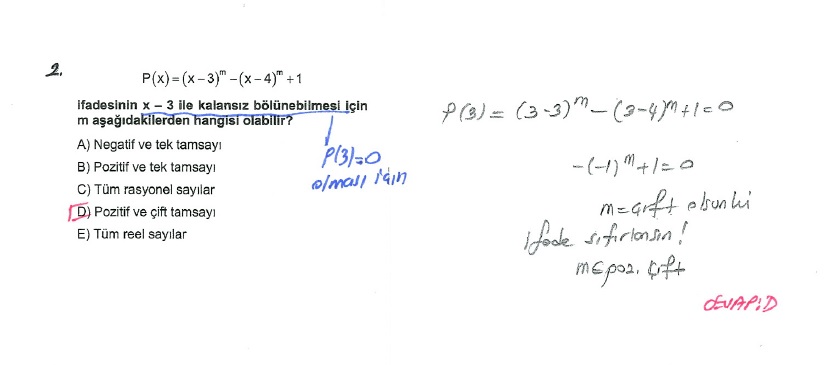 2.
P(x) = (x – 3)ᵐ – (x – 4)ᵐ + 1
ifadesinin x – 3 ile kalansız bölünebilmesi için
m aşağıdakilerden hangisi olabilir?
A) Negatif ve tek tamsayı
B) Pozitif ve tek tamsayı
C) Tüm rasyonel sayılar
D) Pozitif ve çift tamsayı
E) Tüm reel sayılar
P(3)=0
olması için
P(3) = (3-3)ᵐ – (3-4)ᵐ + 1 = 0
-(-1)ᵐ + 1 = 0
m = çift olsun ki
ifade sıfırlansın!
m ∈ poz. çift
CEVAP: D